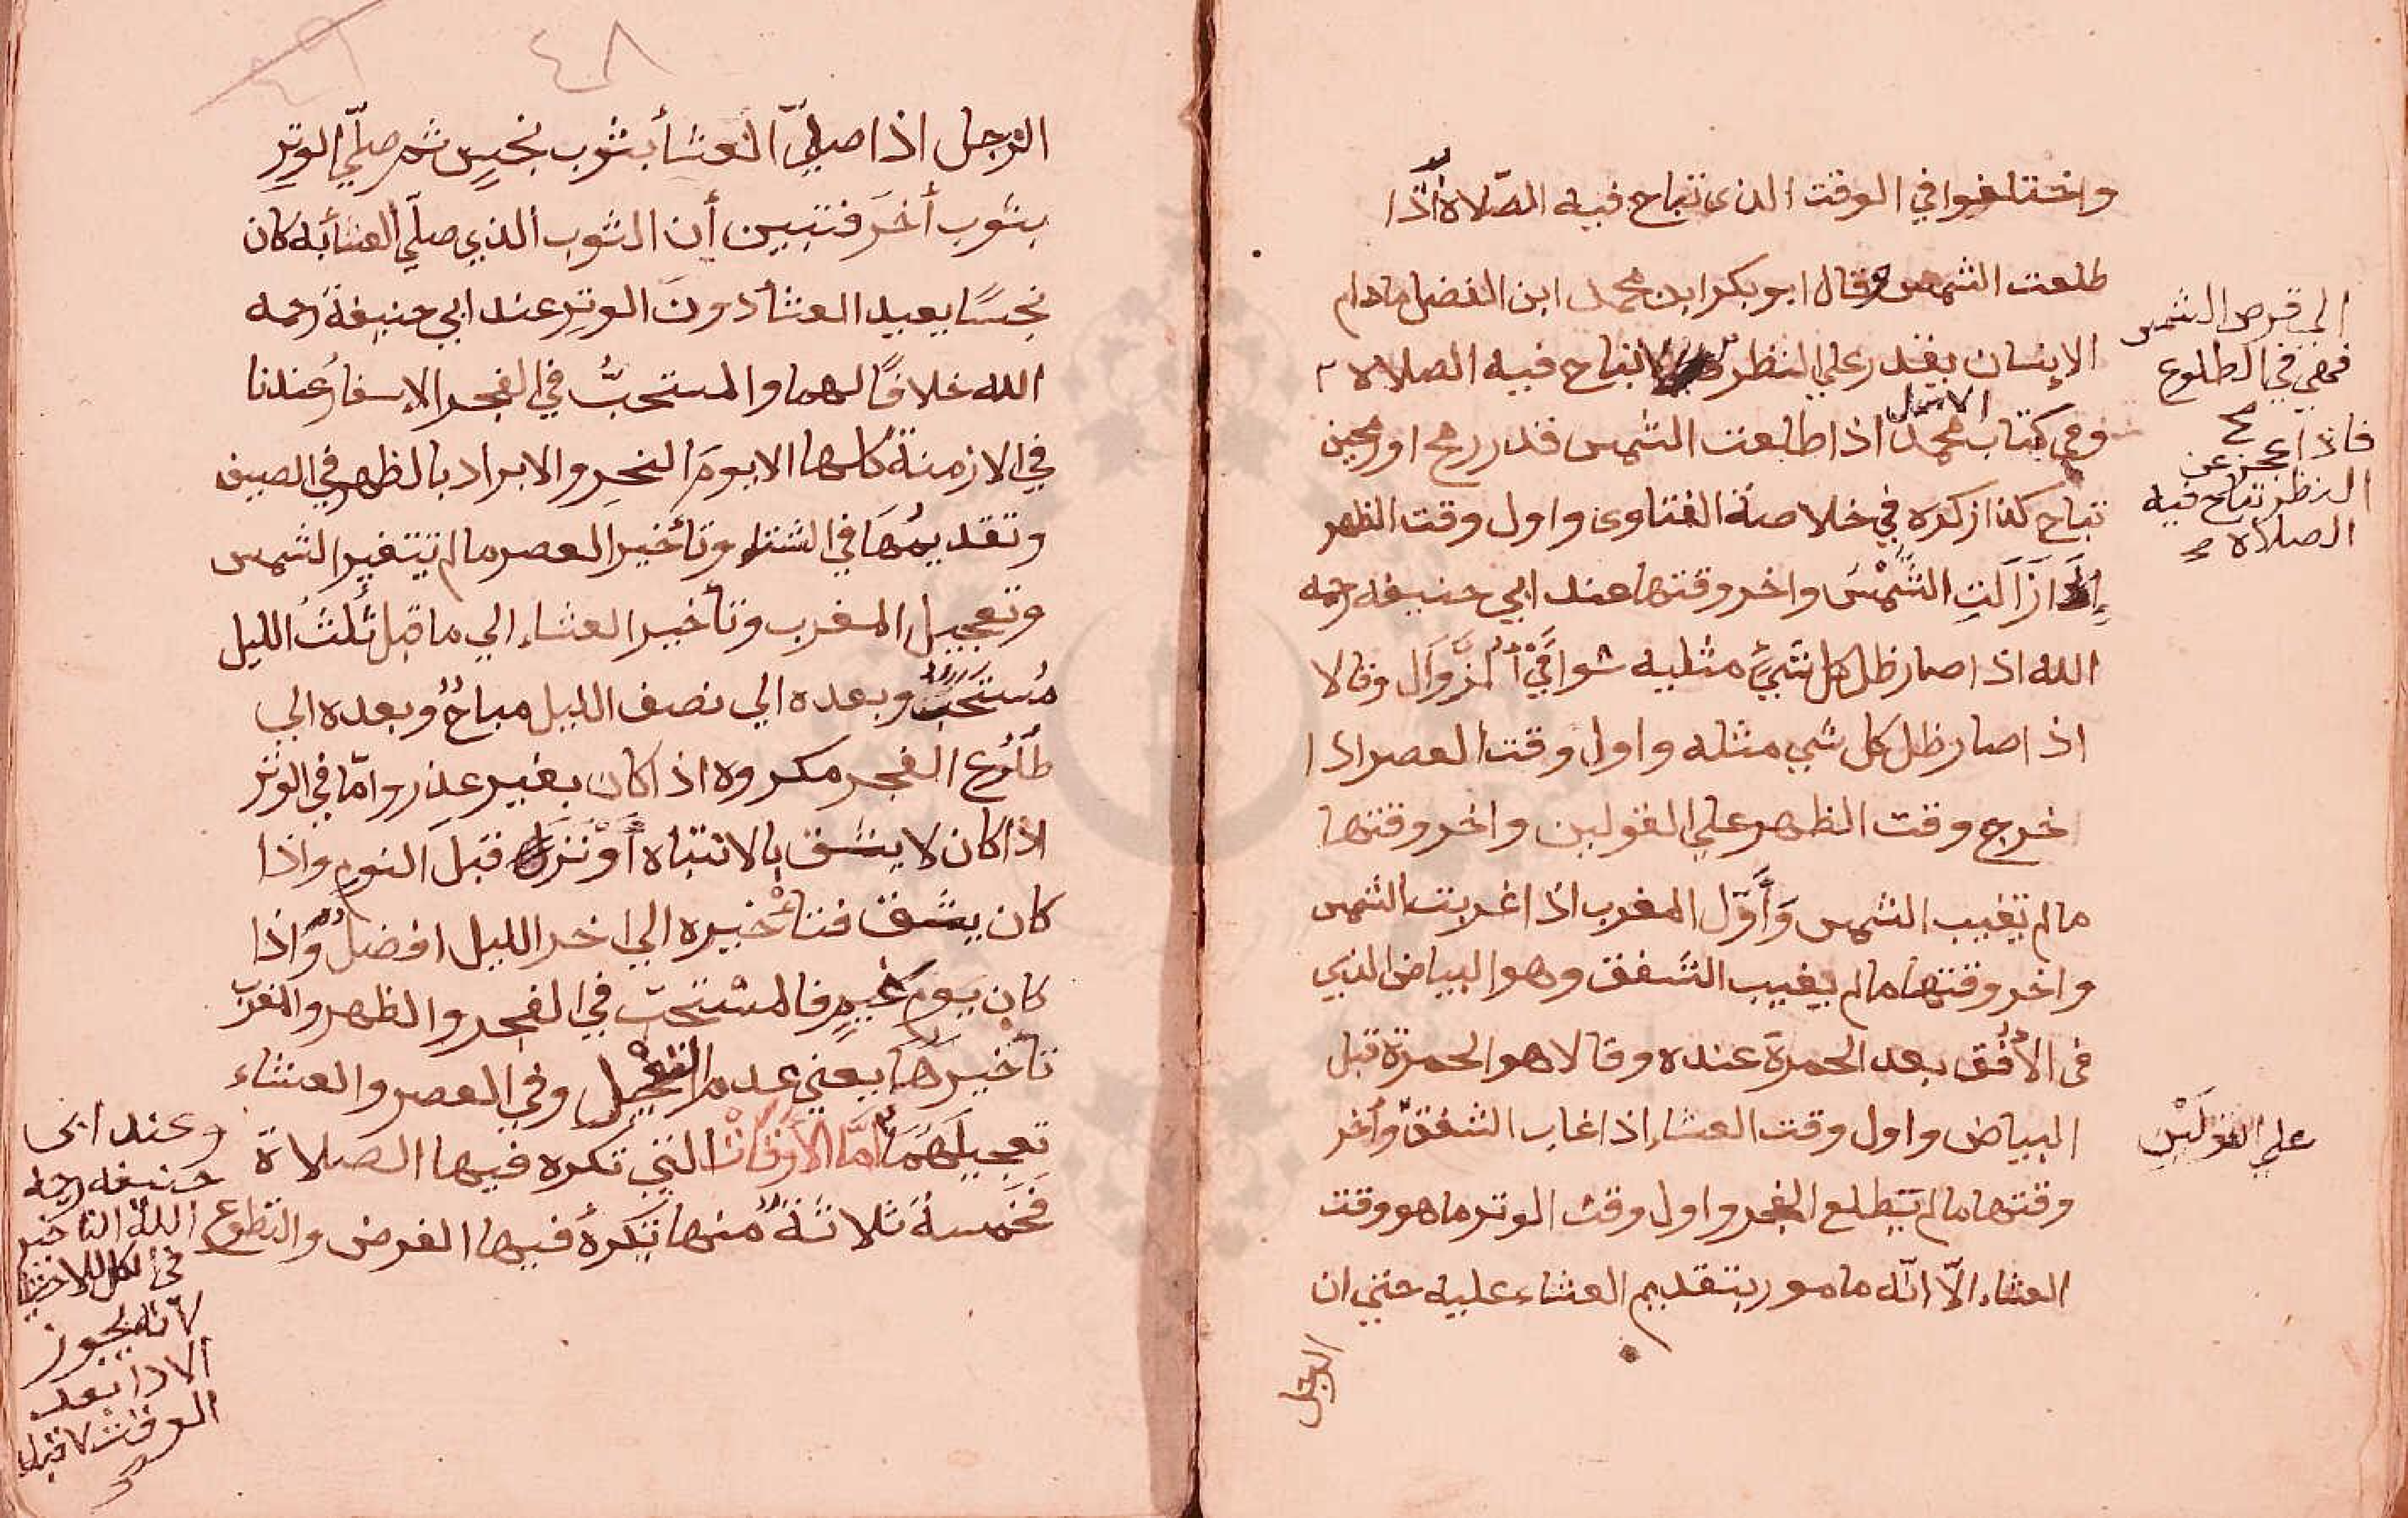 واختلفوا في الوقت الذي تباح فيه الصّلاة اذا
طلعت الشمس وقال ابو بكر ابن محمد ابن الفضل مادام
الإنسان يقدر علي النظر لا تباح فيه الصلاة
وفي كتاب محمد الاصل اذا طلعت الشمس قدر رمح او رمحين
تباح كذا ذكره في خلاصة الفتاوى واول وقت الظهر
إذَا زَالَتِ الشَّمْسَ واخر وقتها عند ابي حنيفه رحمه
الله اذا صار ظل كل شَيْءٍ مثليه سوا فَيْءُ الزَّوَال وقالا
اذا صار ظل كل شي مثله واول وقت العصر اذا
خرج وقت الظهر علي القولين واخر وقتها
ما لم تغيب الشمس وَأَوَّل المغرب اذا غربت الشمس
واخر وقتها ما لم يغيب الشفق وهو البياض الذي
في الأُفُق بعد الحمرة عنده وقالا هو الحمرة قبل
البياض واول وقت العشاء اذا غاب الشفق وأخر
وقتها ما لم يطلع الفجر واول وقت الوتر ما هو وقت
العشاء الّا انّه مامور بتقديم العشاء عليه حتي ان
الرجل
الي قرص الشمس
فهي في الطلوع
فاذا عجز عن
النظر تباح فيه
الصلاة صح
علي القولَيْنِ
٤٨
الرجل اذا صليّ العشأ بثوب نجسٍ ثم صلّي الوترِ
بثوب أخرَ فتبين أن الثوب الذي صلّي العشأ به كان
نجسًا يعيد العشأ دونَ الوترِ عند ابي حنيفةَ رحمه
الله خلافًا لهما والمستحبُّ في الفجر الإسفارُ عندنا
في الازمنة كلها الا يومَ النحرِ والابراد بالظهر في الصيف
وتقديمُهَا في الشتاء وتأخير العصر ما لم تتغير الشمس
وتعجيل المغرب وتأخير العشاء الي ما قبل ثُلثُ الليل
مُستحَبٌّ وبعده الي نصف الليل مباحٌ وبعده الي
طُلُوع الفجر مكروه اذا كان بغير عذر وامّا في الوتر
اذا كان لا يثق بالانتباه أَوْتَرَ قبلَ النوم واذا
كان يثق فتأخيره الي اخر الليل افضلُ وَاذا
كان يوم غيمٍ فالمستحبّ في الفجر والظهر والمغرب
تأخيرهَا يعني عدم التعْجيل وفي العصر والعشاء
تعجيلَهُمَا أمَّا الأوْقَاتْ التي تكره فيها الصلاة
فَخَمسة ثلاثَةٌ منها تُكرهُ فيها الفرض والتطوع
وعند ابي
حنيفه رحمه
اللهُ التأخير
في الكل للاحتيا
لأنه يجوز
الادا بعد
الوقت لا قبل